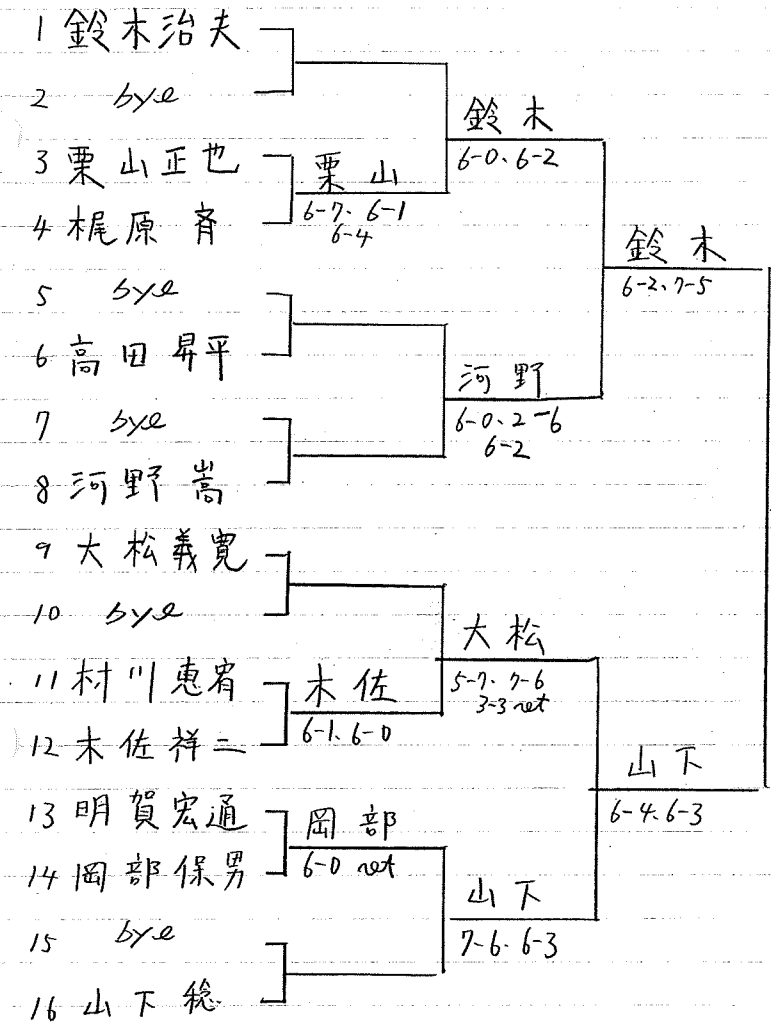 1 鈴木治夫
2 bye
3 栗山正也
4 梶原 斉
5 bye
6 高田昇平
7 bye
8 河野 嵩
9 大松義寛
10 bye
11 村川恵宥
12 木佐祥二
13 明賀宏通
14 岡部保男
15 bye
16 山下 稔
栗山
6-7、6-1
6-4
木佐
6-1、6-0
岡部
6-0 ret
鈴木
6-0、6-2
河野
6-0、2-6
6-2
大松
5-7、7-6
3-3 ret
山下
7-6、6-3
鈴木
6-2、7-5
山下
6-4、6-3